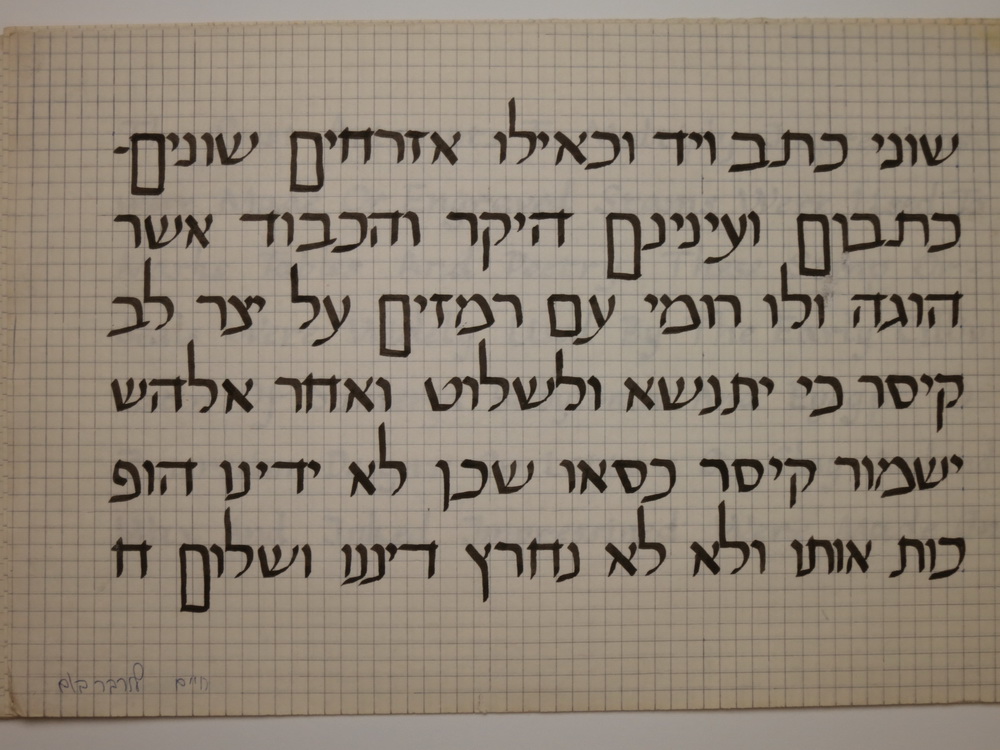 שוני כתב ויד וכאילו אזרחים שונים-
כתבום ועינינם היקר והכבוד אשר
הוגה ולו רומי עם רמזים על יצר לב
קיסר כי יתנשא ולשלוט ואחר אלהש
ישמור קיסר כסאו שכן לא ידינו הופ
כות אותו ולא לא נחרץ דיננו ושלום ח
חיים